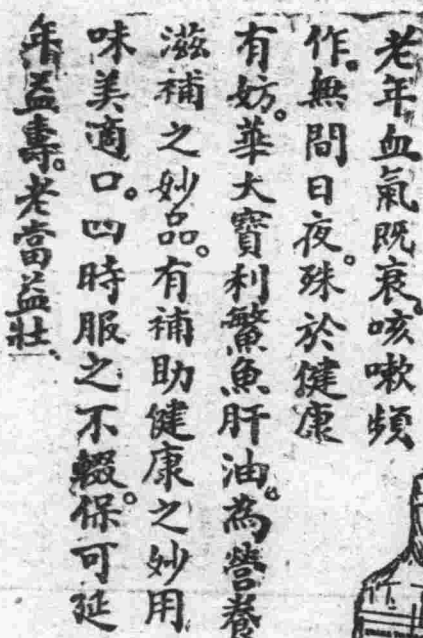 老年血氣既衰。咳嗽頻
作。無間日夜。殊於健康
有妨。華大寶利鱉魚肝油。為營養
滋補之妙品。有補助健康之妙用
味美適口。四時服之不輟。保可延
年益壽。老當益壯、